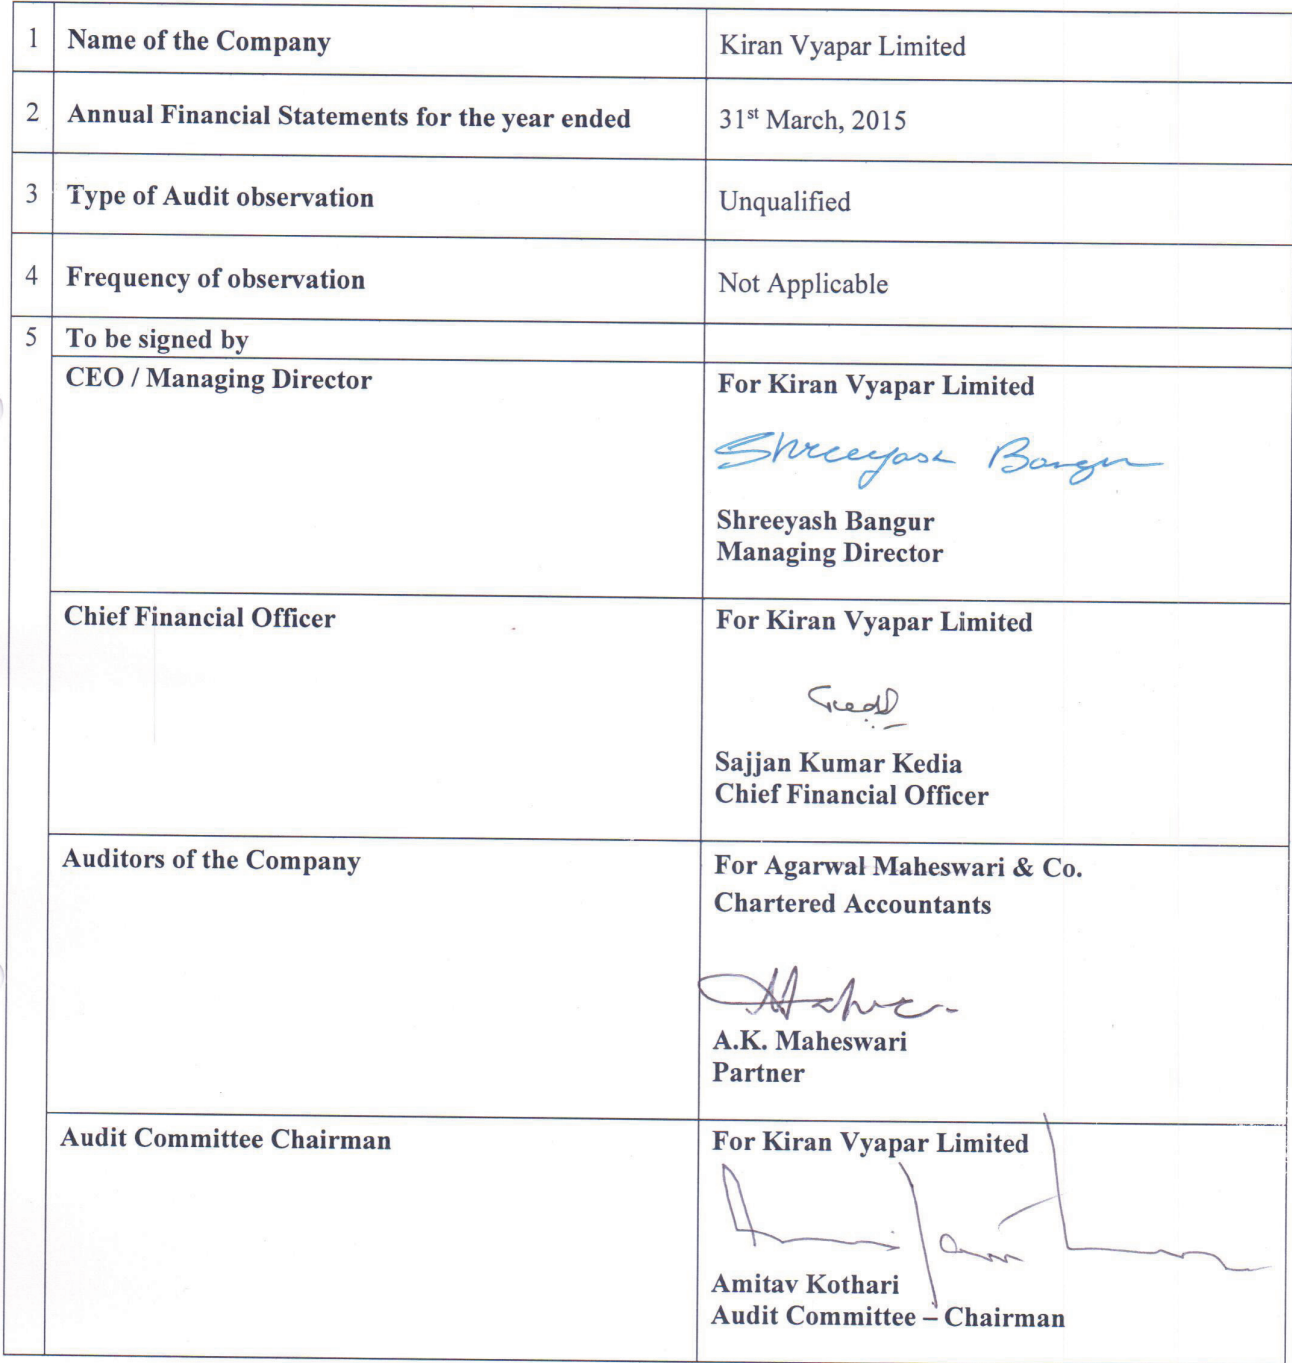 1 Name of the Company Kiran Vyapar Limited
2 Annual Financial Statements for the year ended 31st March, 2015
3 Type of Audit observation Unqualified
4 Frequency of observation Not Applicable
5 To be signed by
CEO / Managing Director For Kiran Vyapar Limited
Shreeyash Bangur
Shreeyash Bangur
Managing Director
Chief Financial Officer For Kiran Vyapar Limited
Sajjan Kumar Kedia
Chief Financial Officer
Auditors of the Company For Agarwal Maheswari & Co.
Chartered Accountants
A.K. Maheswari
Partner
Audit Committee Chairman For Kiran Vyapar Limited
Amitav Kothari
Audit Committee – Chairman